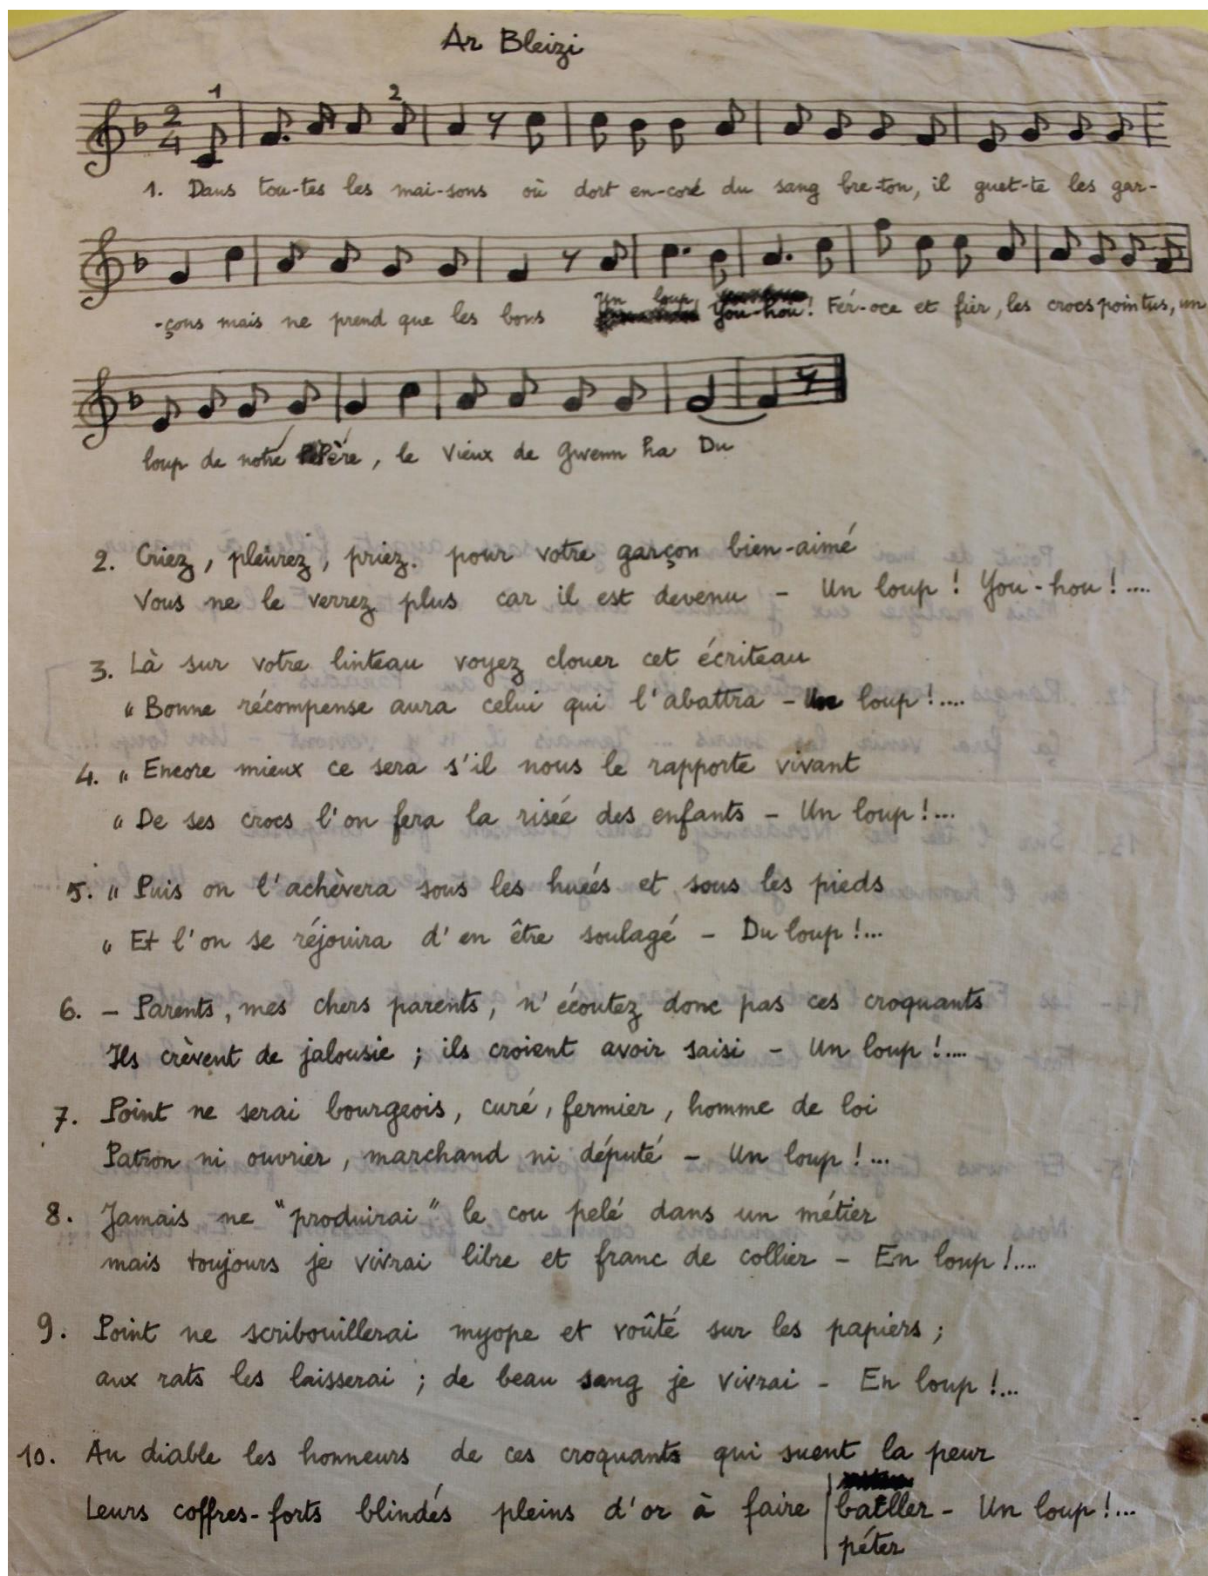 Ar Bleizi
1 2
2
4
1. Dans tou-tes les mai-sons où dort en-core du sang bre-ton, il guet-te les gar-
-çons mais ne prend que les bons Un loup, You-hou! Fér-oce et fier, les crocs pointus, un
loup de notre Pépère, le Vieux de Gwenn ha Du
2. Criez, pleurez, priez. pour votre garçon bien-aimé
Vous ne le verrez plus car il est devenu - Un loup ! You-hou !....
3. Là sur votre linteau voyez clouer cet écriteau
" Bonne récompense aura celui qui l'abattra - Un loup !....
4. " Encore mieux ce sera s'il nous le rapporte vivant
" De ses crocs l'on fera la risée des enfants - Un loup !...
5. " Puis on l'achèvera sous les huées et sous les pieds
" Et l'on se réjouira d'en être soulagé - Du loup !...
6. - Parents, mes chers parents, n'écoutez donc pas ces croquants
Ils crèvent de jalousie ; ils croient avoir saisi - Un loup !....
7. Point ne serai bourgeois, curé, fermier, homme de loi
Patron ni ouvrier, marchand ni député - Un loup !...
8. Jamais ne "produirai" le cou pelé dans un métier
mais toujours je vivrai libre et franc de collier - En loup !....
9. Point ne scribouillerai myope et voûté sur les papiers ;
aux rats les laisserai ; de beau sang je vivrai - En loup !...
10. Au diable les honneurs de ces croquants qui suent la peur
Leurs coffres-forts blindés pleins d'or à faire batller - Un loup !...
péter